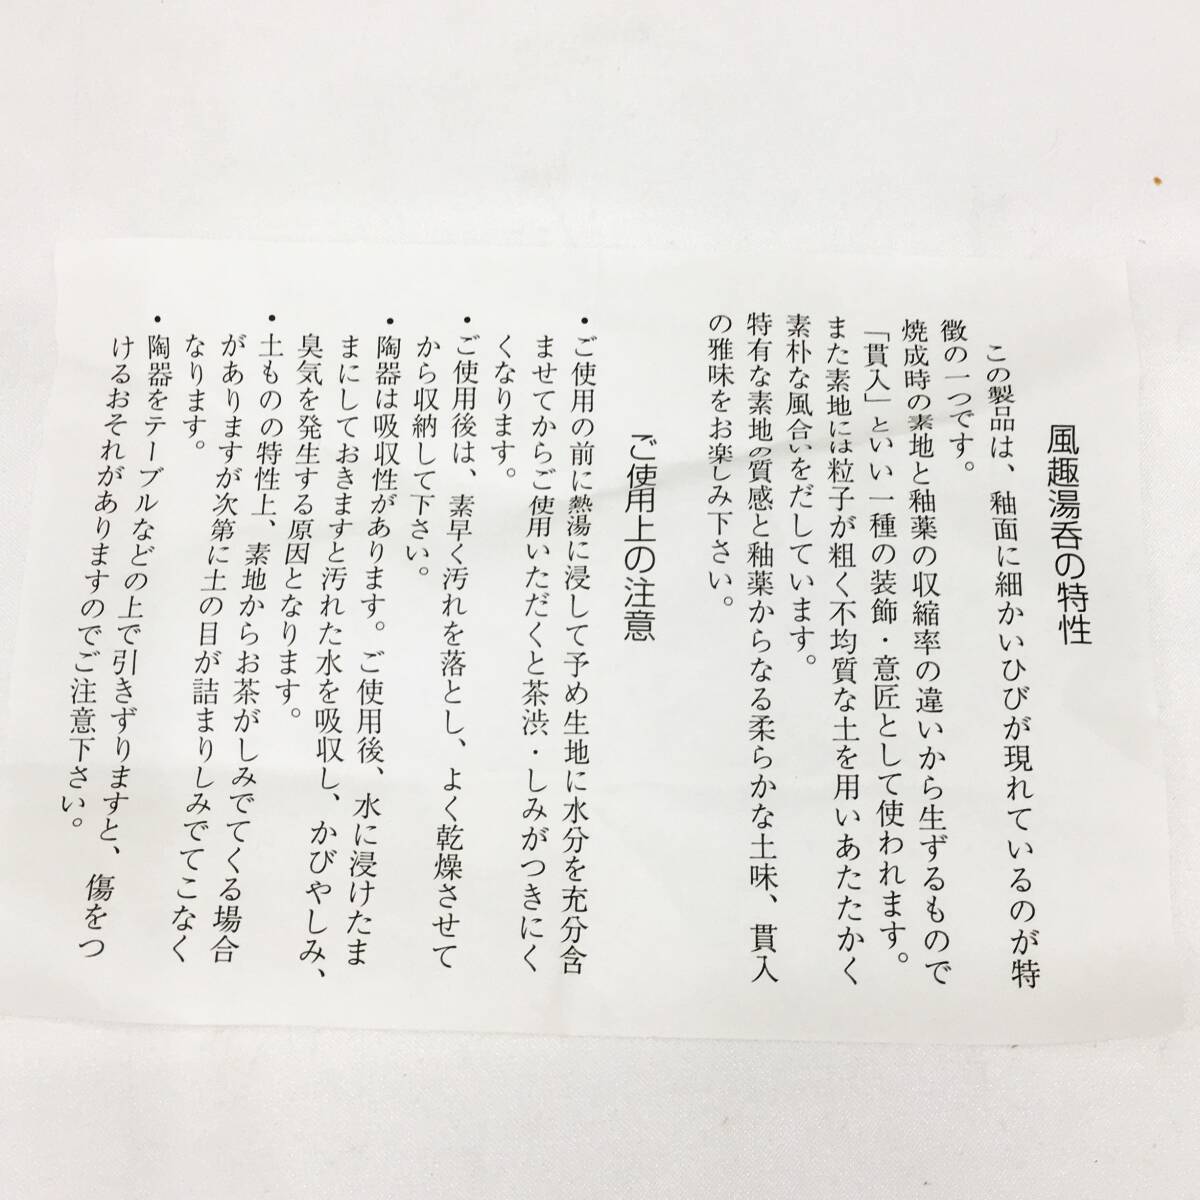 風趣湯呑の特性
この製品は、釉面に細かいひびが現れているのが特
徴の一つです。
焼成時の素地と釉薬の収縮率の違いから生ずるもので
「貫入」といい一種の装飾・意匠として使われます。
また素地には粒子が粗く不均質な土を用いあたたかく
素朴な風合いをだしています。
特有な素地の質感と釉薬からなる柔らかな土味、貫入
の雅味をお楽しみ下さい。
ご使用上の注意
・ご使用の前に熱湯に浸して予め生地に水分を充分含
ませてからご使用いただくと茶渋・しみがつきにく
くなります。
・ご使用後は、素早く汚れを落とし、よく乾燥させて
から収納して下さい。
・陶器は吸収性があります。ご使用後、水に浸けたま
まにしておきますと汚れた水を吸収し、かびやしみ、
臭気を発生する原因となります。
・土ものの特性上、素地からお茶がしみでてくる場合
がありますが次第に土の目が詰まりしみでてこなく
なります。
・陶器をテーブルなどの上で引きずりますと、傷をつ
けるおそれがありますのでご注意下さい。